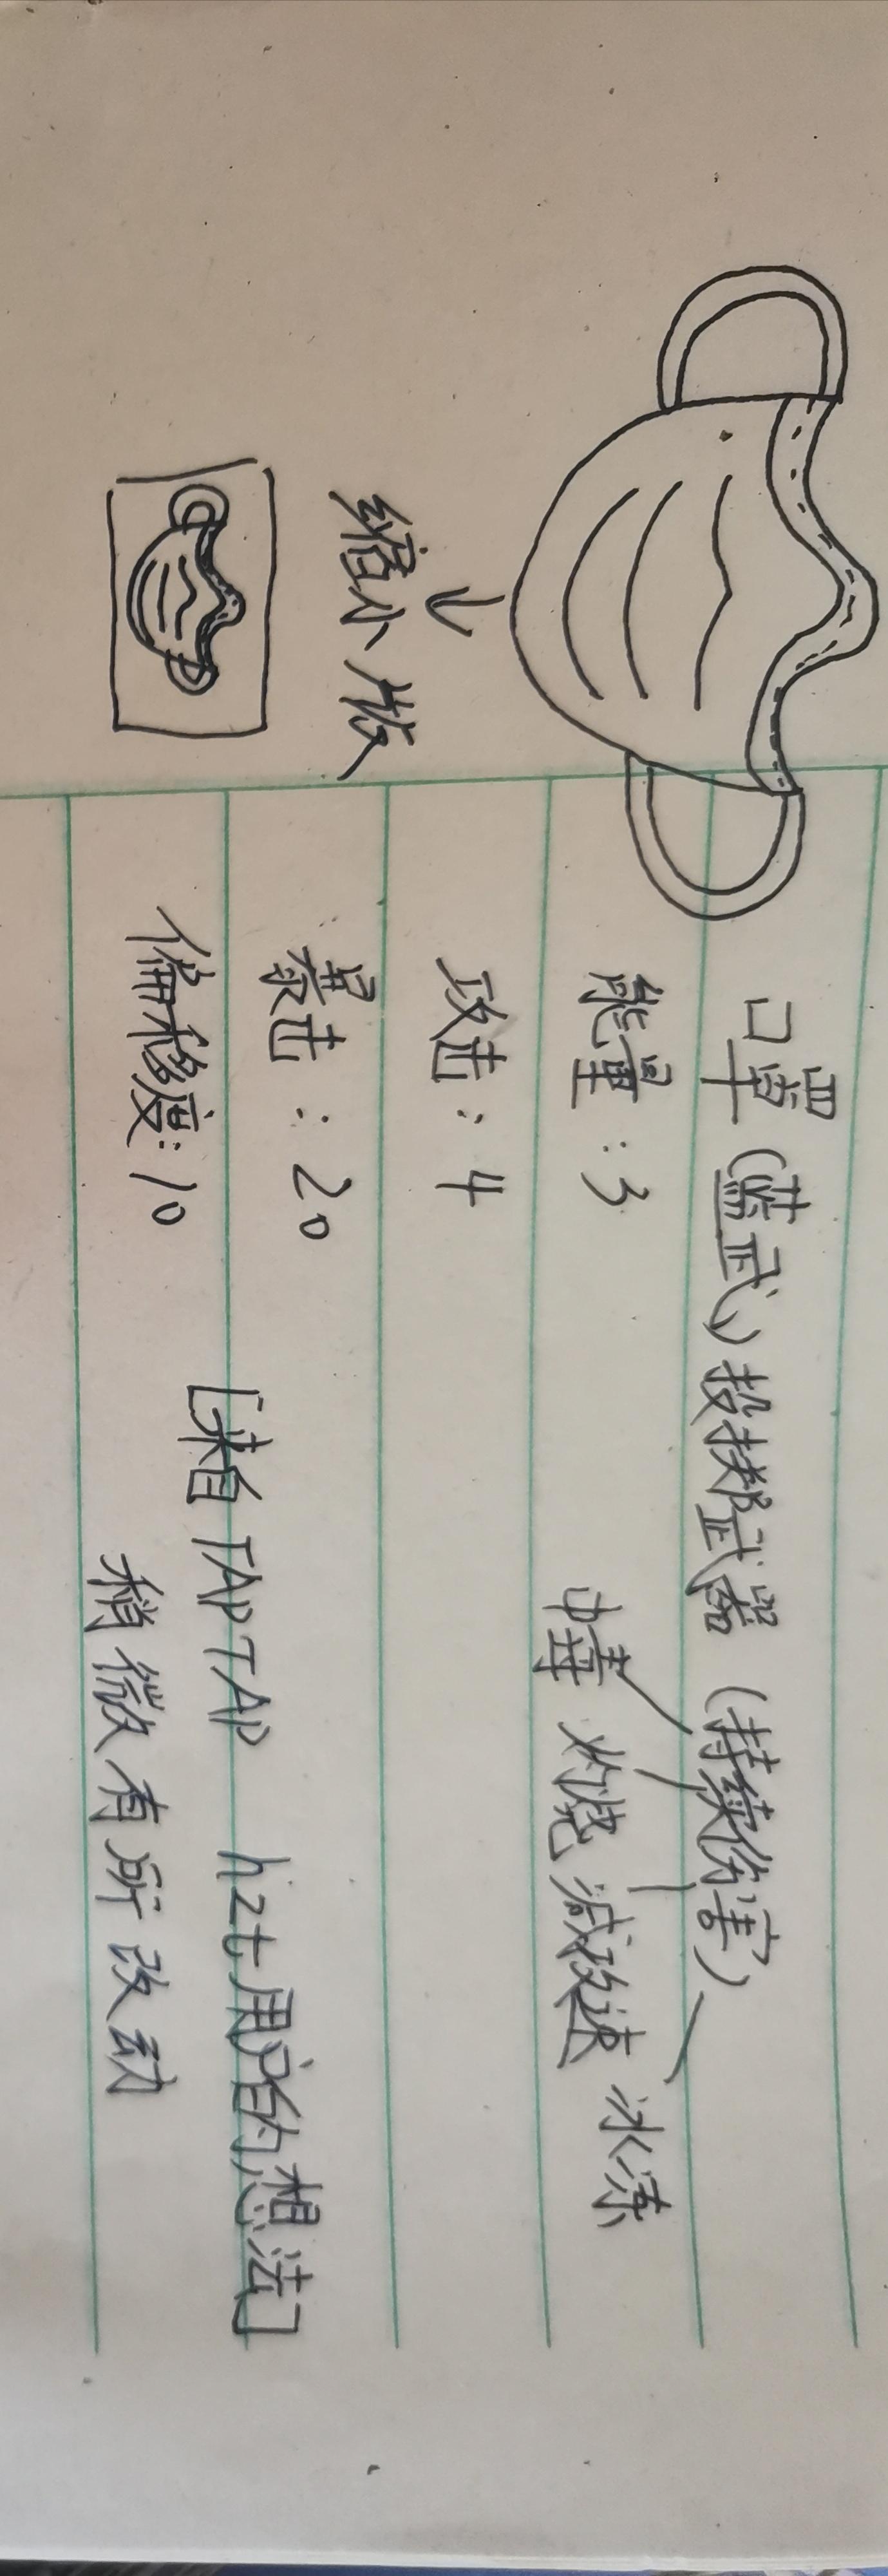 口罩(蓝武)投掷武器(持续伤害)
能量:3
中毒 灼烧 减攻速 冰冻
攻击:4
暴击:20
偏移度:10
[来自TAPTAP hzt用户的想法]
稍微有所改动
缩小版